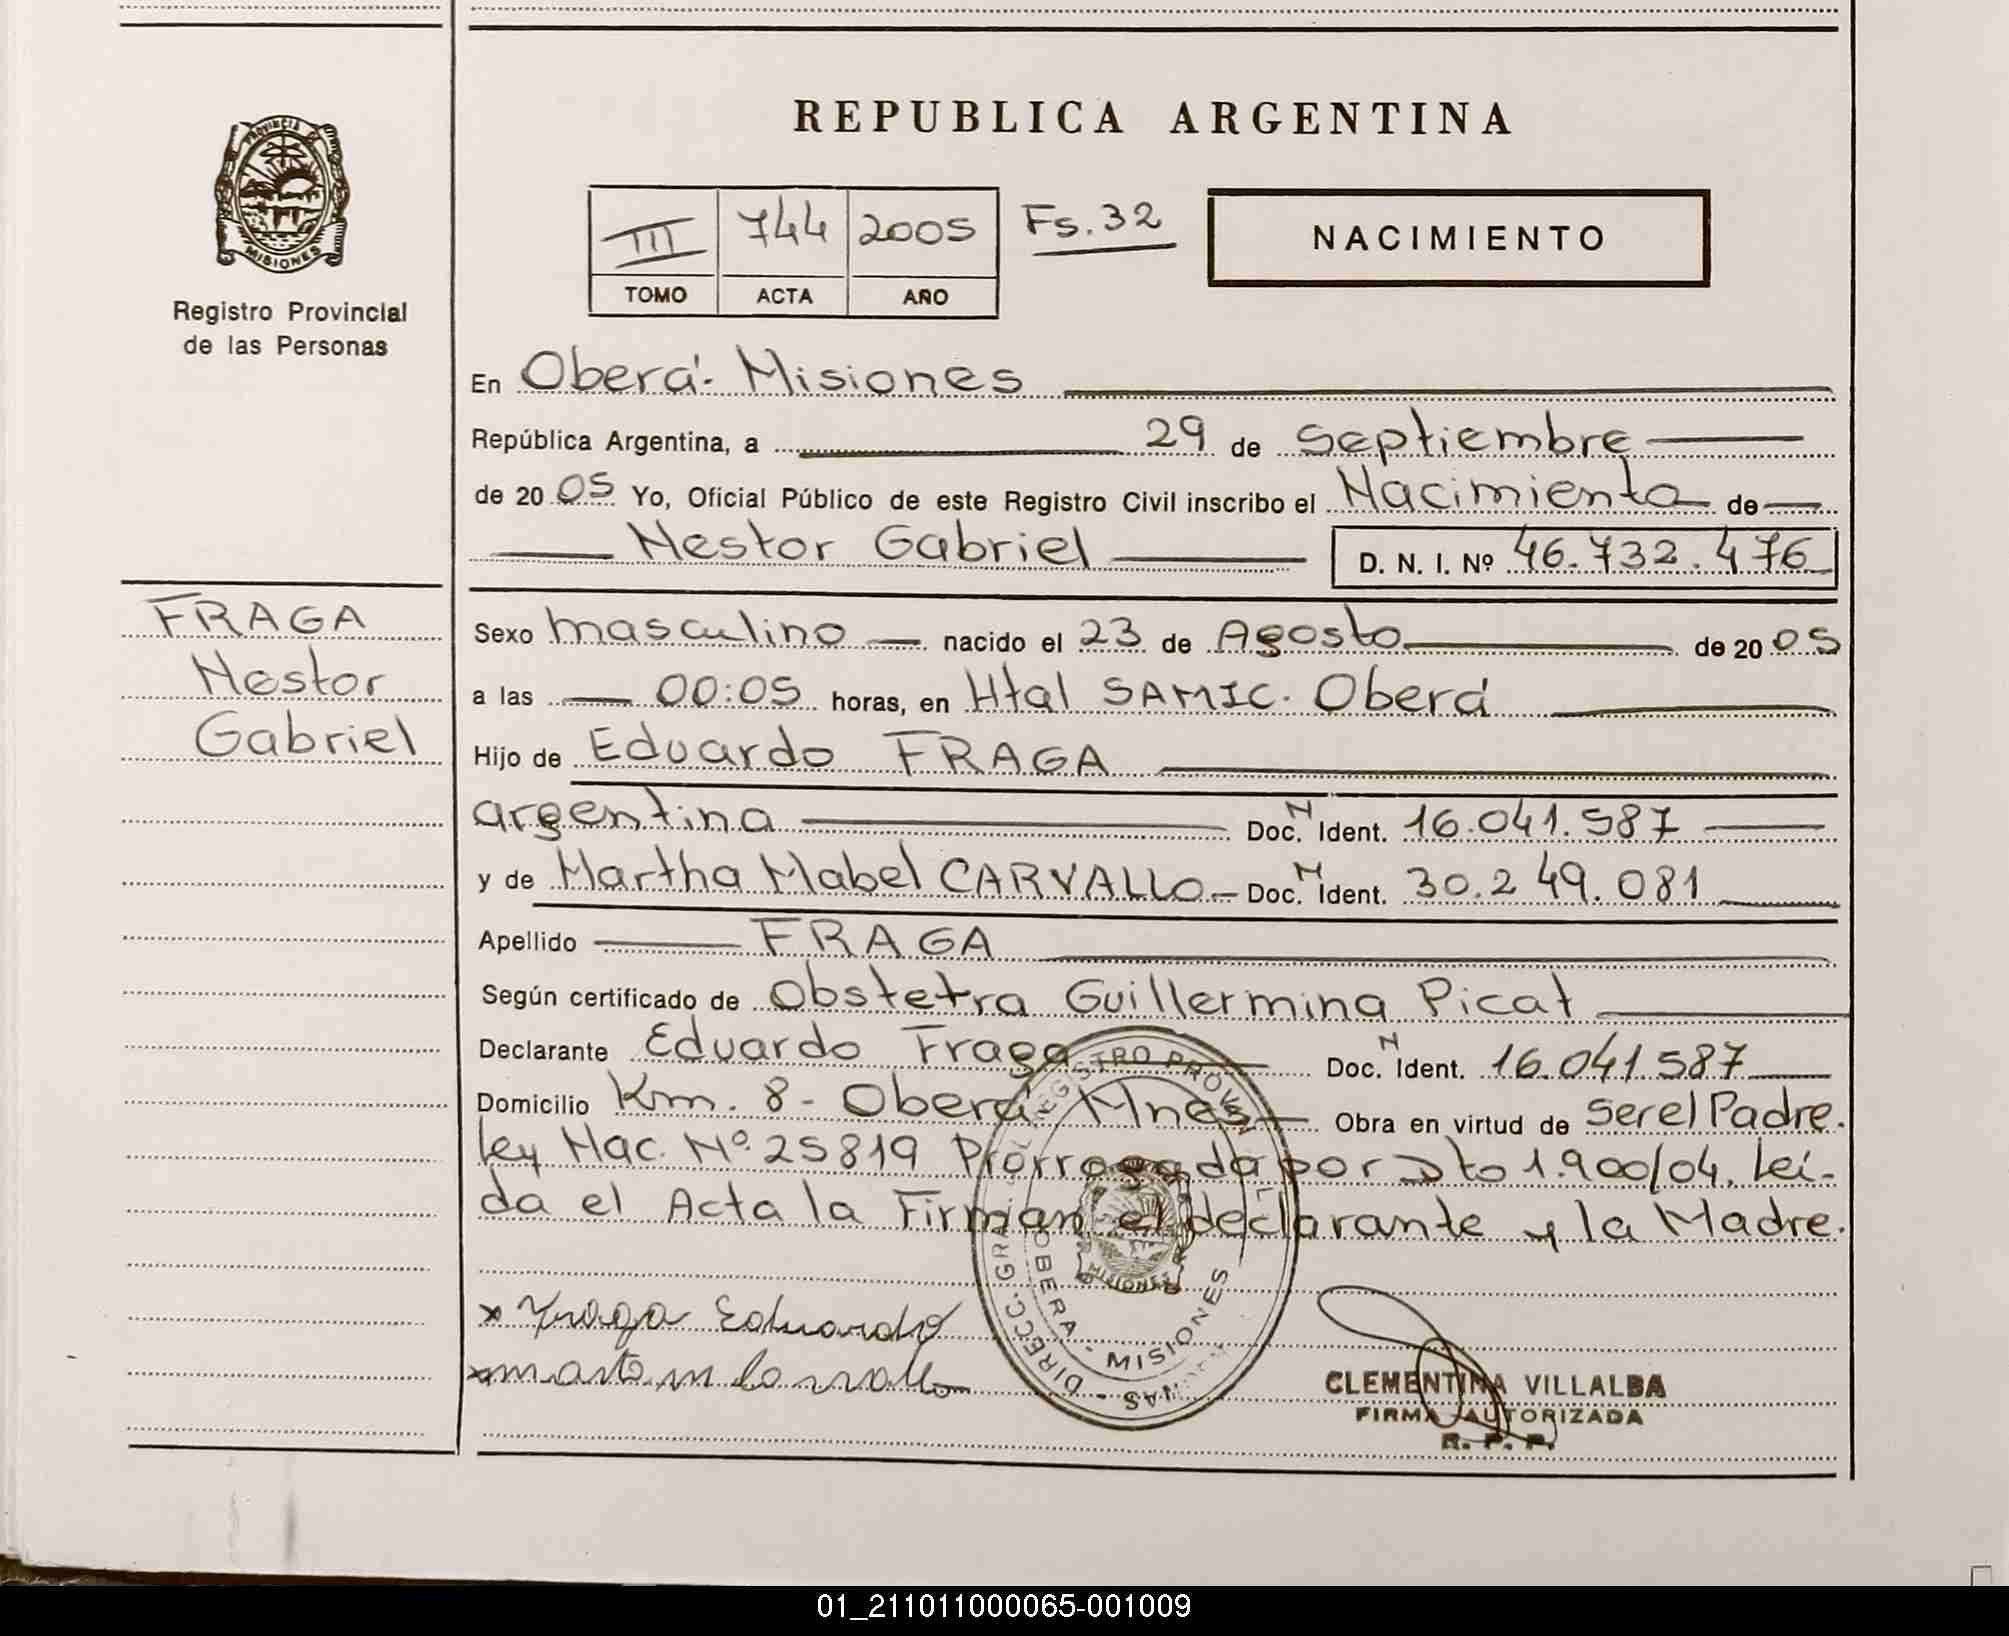 REPUBLICA ARGENTINA
PROVINCIA
MISIONES
Registro Provincial
de las Personas
III 744 2005 Fs. 32
TOMO ACTA AÑO
NACIMIENTO
En Oberá - Misiones
República Argentina, a 29 de Septiembre
de 20 05 Yo, Oficial Público de este Registro Civil inscribo el Nacimiento de
Nestor Gabriel D. N. I. Nº 46.732.476
FRAGA
Nestor
Gabriel
Sexo masculino nacido el 23 de Agosto de 20 05
a las 00:05 horas, en Htal SAMIC. Oberá
Hijo de Eduardo FRAGA
argentina Doc. N Ident. 16.041.587
y de Martha Mabel CARVALLO - Doc. N Ident. 30.249.081
Apellido FRAGA
Según certificado de Obstetra Guillermina Picat
Declarante Eduardo Fraga Doc. N Ident. 16.041.587
Domicilio Km. 8 - Oberá Mnes Obra en virtud de Ser el Padre.
Ley Nac. Nº 25819 Prorrogada por Dto 1.900/04. Leí-
da el Acta la Firman el declarante y la Madre.
x Fraga Eduardo
DIRECC. GRAL. REGISTRO PROVINCIAL
OBERA - MISIONES
MISIONES
CLEMENTINA VILLALBA
FIRMA AUTORIZADA
R. P. P.
01_211011000065-001009